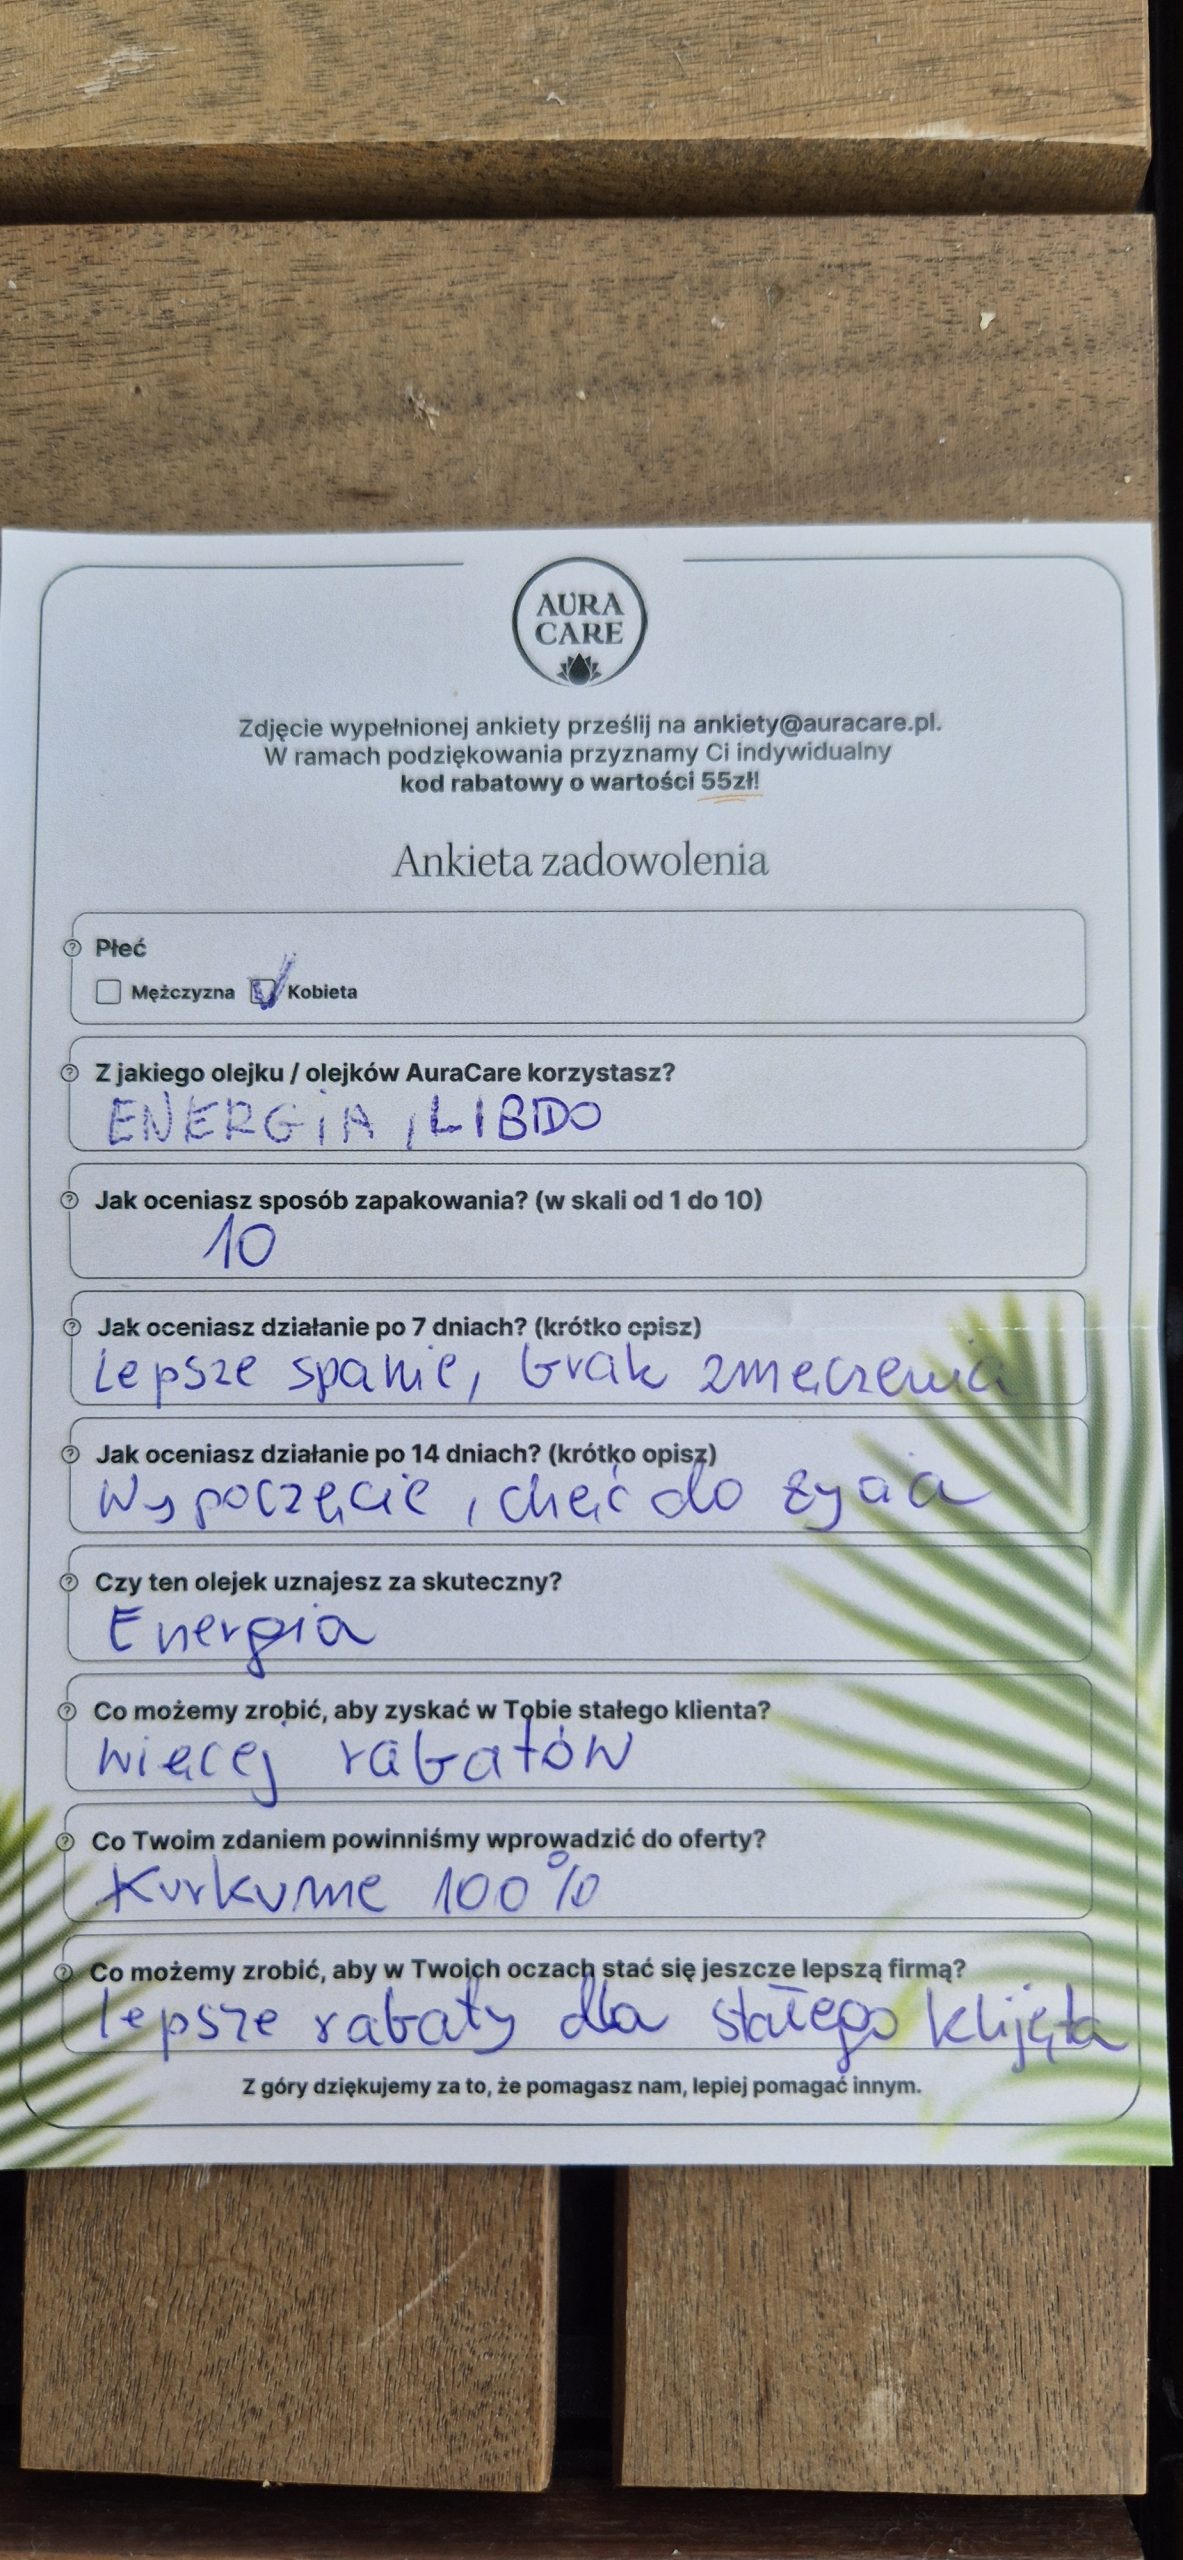 AURA
CARE
Zdjęcie wypełnionej ankiety prześlij na ankiety@auracare.pl.
W ramach podziękowania przyznamy Ci indywidualny
kod rabatowy o wartości 55zł!
Ankieta zadowolenia
Płeć
Mężczyzna Kobieta
Z jakiego olejku / olejków AuraCare korzystasz?
ENERGiA, LIBIDO
Jak oceniasz sposób zapakowania? (w skali od 1 do 10)
10
Jak oceniasz działanie po 7 dniach? (krótko opisz)
Lepsze spanie, brak zmęczenia
Jak oceniasz działanie po 14 dniach? (krótko opisz)
Wypoczęcie, chęć do życia
Czy ten olejek uznajesz za skuteczny?
Energia
Co możemy zrobić, aby zyskać w Tobie stałego klienta?
więcej rabatów
Co Twoim zdaniem powinniśmy wprowadzić do oferty?
Kurkume 100%
Co możemy zrobić, aby w Twoich oczach stać się jeszcze lepszą firmą?
lepsze rabaty dla stałego klijęta
Z góry dziękujemy za to, że pomagasz nam, lepiej pomagać innym.